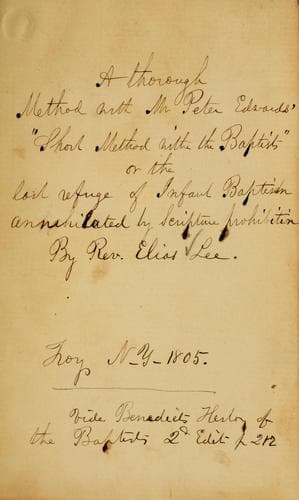 A thorough
Method with Mr Peter Edwards'
"Short Method with the Baptists"
or the
last refuge of Infant Baptism
annihilated by scripture prohibition
By Rev. Elias Lee.
Troy N-Y- 1805.
Vide Benedicts History of
the Baptists 2d Edit p 212